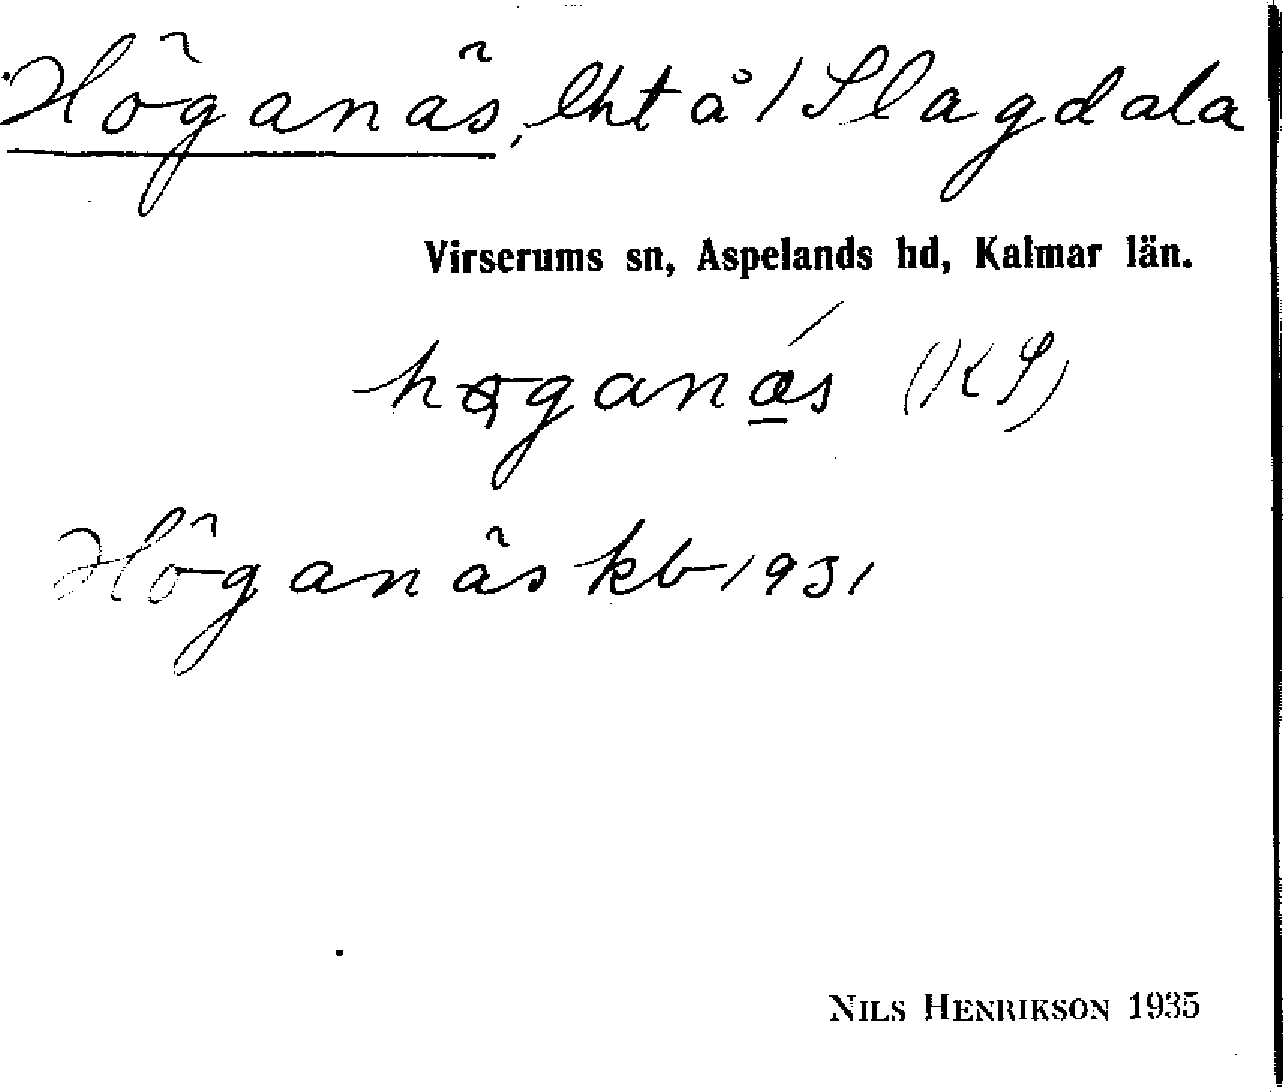 Höganäs, lht å 1 Slagdala
Virserums sn, Aspelands hd, Kalmar län.
(KS)
Höganäs kb 1931
NILS HENRIKSON 1935